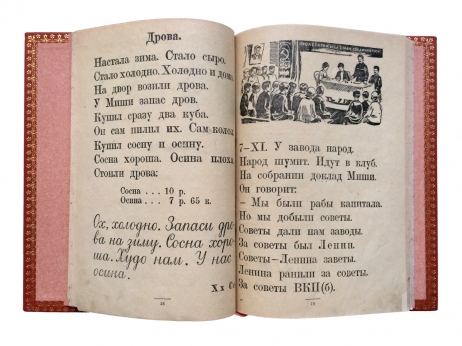 Дрова.
Настала зима. Стало сыро.
Стало холодно. Холодно и дома.
На двор возили дрова.
У Миши запас дров.
Купил сразу два куба.
Он сам пилил их. Сам колол.
Купил сосну и осину.
Сосна хороша. Осина плоха.
Стоили дрова:
Сосна . . . 10 р.
Осина . . . 7 р. 65 к.
Ох, холодно. Запаси дро-
ва на зиму. Сосна хоро-
ша. Худо нам. У нас
осина.
Хх
7–XI. У завода народ.
Народ шумит. Идут в клуб.
На собрании доклад Миши.
Он говорит:
— Мы были рабы капитала.
Но мы добыли советы.
Советы дали нам заводы.
За советы был Ленин.
Советы–Ленина заветы.
Ленина ранили за советы.
За советы ВКП(б).